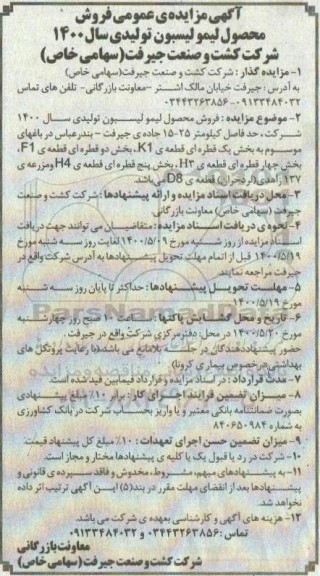 آگهی مزایده ی عمومی فروش
محصول لیمو لیسبون تولیدی سال ۱۴۰۰
شرکت کشت و صنعت جیرفت (سهامی خاص)
۱- مزایده گذار: شرکت کشت و صنعت جیرفت (سهامی خاص)
به آدرس: جیرفت خیابان مالک اشتر -معاونت بازرگانی- تلفن های تماس
۰۹۱۳۳۴۸۴۰۳۲ -۰۳۴۴۳۲۶۳۸۵۶
۲- موضوع مزایده: فروش محصول لیمو لیسبون تولیدی سال ۱۴۰۰
شرکت، حد فاصل کیلومتر ۲۵-۱۵ جاده ی جیرفت - بندرعباس در باغهای
موسوم به بخش یک قطره ای قطعه ی K1، بخش دو قطره ای قطعه ی F1،
بخش چهار قطره ای قطعه ی H3، بخش پنج قطره ای قطعه ی H4 ومزرعه ی
۱۳۷ زاهدی (فردجران) قطعه ی D8 می باشد.
۳- محل دریافت اسناد مزایده و ارائه پیشنهادها: شرکت کشت و صنعت
جیرفت (سهامی خاص) معاونت بازرگانی.
۴- نحوه ی دریافت اسناد مزایده: متقاضیان می توانند جهت دریافت
اسناد مزایده از روز شنبه مورخ ۱۴۰۰/۵/۰۹ لغایت روز سه شنبه مورخ
۱۴۰۰/۵/۱۹ قبل از اتمام مهلت تحویل پیشنهادها به آدرس شرکت واقع در
جیرفت مراجعه نمایند.
۵- مهلت تحویل پیشنهادها: حداکثر تا پایان روز سه شنبه
مورخ ۱۴۰۰/۵/۱۹
۶- تاریخ و محل گشایش پاکتها: ساعت ۱۰ صبح روز چهارشنبه
مورخ ۱۴۰۰/۵/۲۰ در محل: دفتر مرکزی شرکت واقع در جیرفت،
حضور پیشنهاددهندگان در جلسه بلامانع می باشد. (با رعایت پروتکل های
بهداشتی درخصوص بیماری کرونا)
۷- مدت قرارداد: در اسناد مزایده و قرارداد فیمابین قید شده است.
۸- میزان تضمین فرایند اجرای کار: برابر ۱۰٪ مبلغ پیشنهادی
بصورت ضمانتنامه بانکی معتبر و یا واریز بحساب شرکت در بانک کشاورزی
به شماره ۸۴۰۶۵۰۹۸۴
۹- میزان تضمین حسن اجرای تعهدات: ۱۰٪ مبلغ کل پیشنهاد قیمت.
۱۰- شرکت در رد یا قبول یک یا کلیه ی پیشنهادها مختار و مجاز است.
۱۱- به پیشنهادهای مبهم، مشروط، مخدوش و فاقد سپرده ی قانونی و
پیشنهادها بعد از انقضای مهلت مقرر در بند(۵) این آگهی ترتیب اثر داده
نخواهد شد.
۱۲- هزینه های آگهی و کارشناسی بعهده ی شرکت می باشد.
تماس: ۰۳۴۴۳۲۶۳۸۵۶ و ۰۹۱۳۳۴۸۴۰۳۲
معاونت بازرگانی
شرکت کشت و صنعت جیرفت (سهامی خاص)